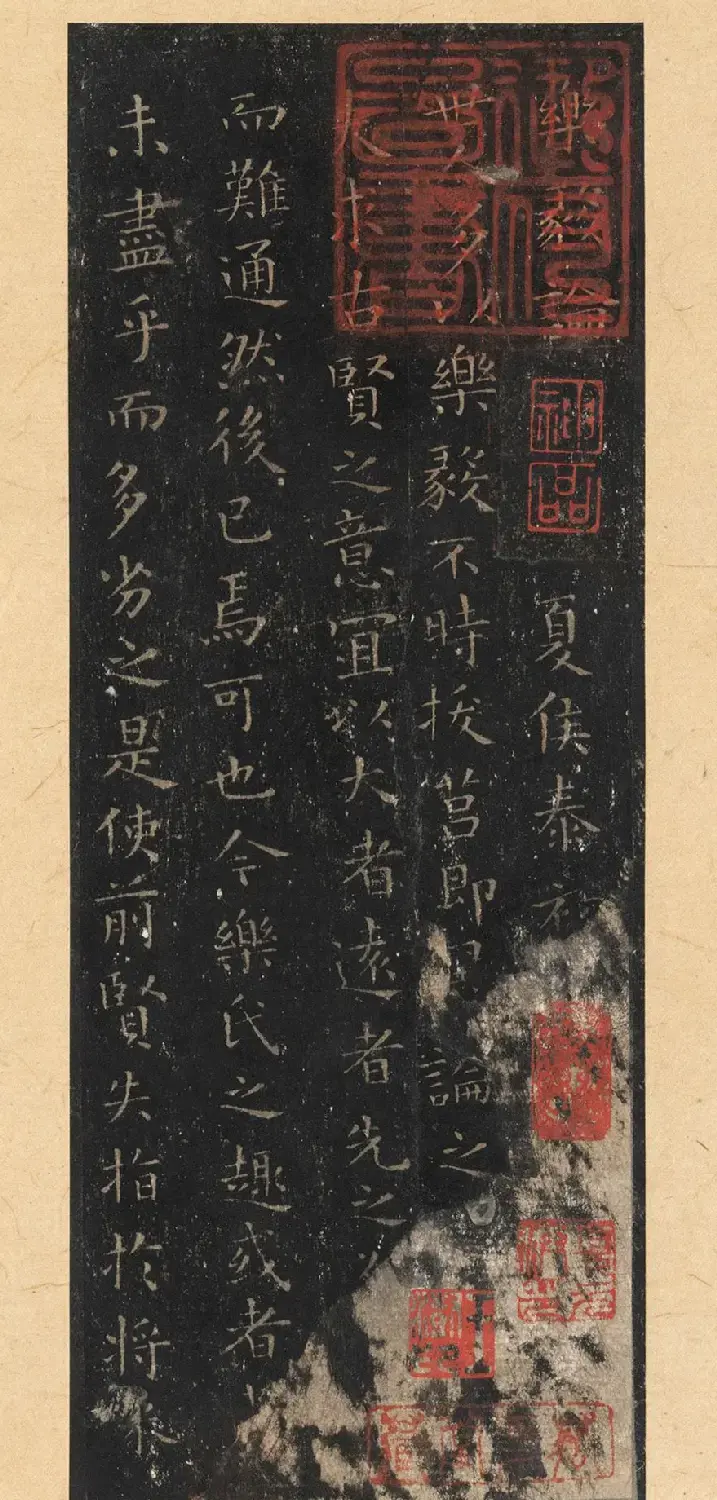 樂毅論 夏侯泰初
世人多以樂毅不時拔莒即墨論之
夫求古賢之意宜以大者遠者先之
而難通然後已焉可也今樂氏之趣或者
未盡乎而多劣之是使前賢失指於將來
神品